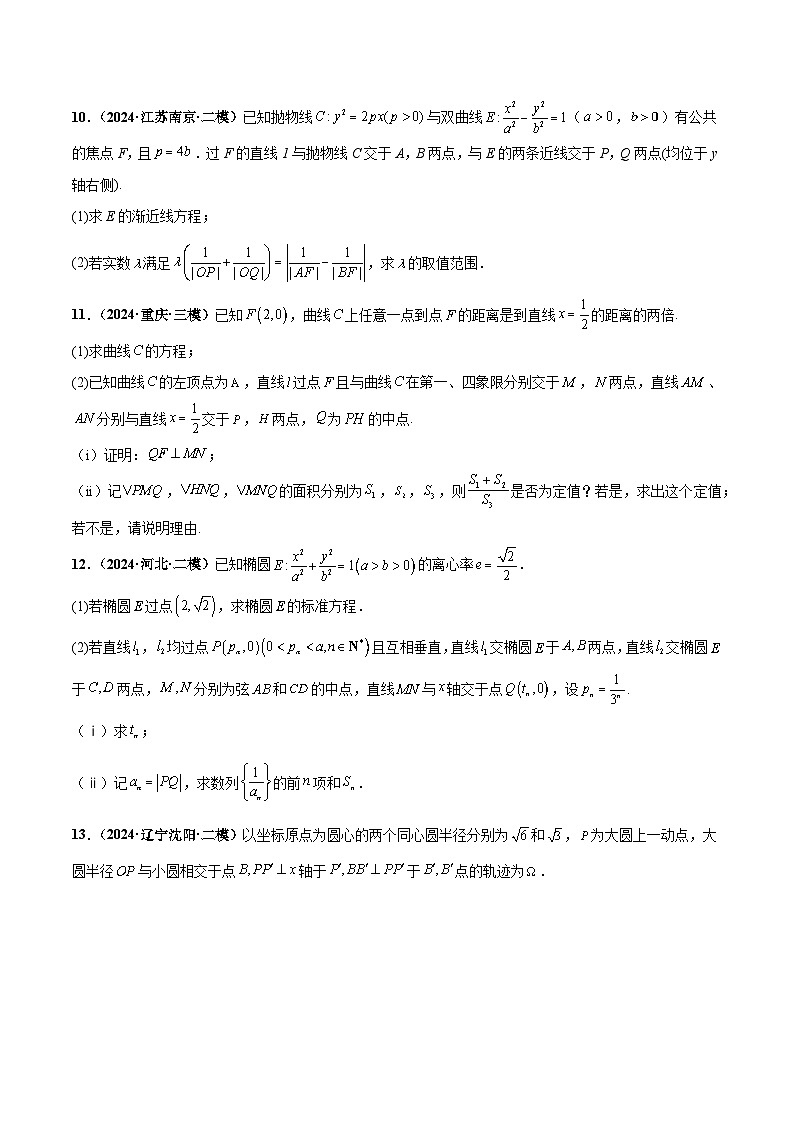 10.（2024·江苏南京·二模）已知抛物线 C : y² = 2px( p > 0) 与双曲线 E : x²/a² − y²/b² = 1（ a > 0 ， b > 0 ）有公共
的焦点 F，且 p = 4b .过 F 的直线 l 与抛物线 C 交于 A，B 两点，与 E 的两条近线交于 P，Q 两点(均位于 y
轴右侧).
(1)求 E 的渐近线方程；
(2)若实数 λ 满足 λ(1/|OP| + 1/|OQ|) = |1/|AF| − 1/|BF||，求 λ 的取值范围．
11.（2024·重庆·三模）已知 F(2,0)，曲线 C 上任意一点到点 F 的距离是到直线 x = 1/2 的距离的两倍.
(1)求曲线 C 的方程；
(2)已知曲线 C 的左顶点为 A ，直线 l 过点 F 且与曲线 C 在第一、四象限分别交于 M ， N 两点，直线 AM 、
AN 分别与直线 x = 1/2 交于 P ， H 两点， Q 为 PH 的中点.
（i）证明：QF ⊥ MN ；
（ii）记 VPMQ ，VHNQ ，VMNQ 的面积分别为 S₁ ， S₂ ， S₃ ，则 (S₁ + S₂)/S₃ 是否为定值？若是，求出这个定值；
若不是，请说明理由.
12.（2024·河北·二模）已知椭圆 E : x²/a² + y²/b² = 1(a > b > 0) 的离心率 e = √2/2 ．
(1)若椭圆 E 过点 (2, √2)，求椭圆 E 的标准方程．
(2)若直线 l₁ ， l₂ 均过点 P(pₙ,0)(0 < pₙ < a,n ∈ N*) 且互相垂直，直线 l₁ 交椭圆 E 于 A,B 两点，直线 l₂ 交椭圆 E
于 C,D 两点， M ,N 分别为弦 AB 和 CD 的中点，直线 MN 与 x 轴交于点 Q(tₙ,0)，设 pₙ = 1/3ⁿ .
（ⅰ）求 tₙ ；
（ⅱ）记 aₙ = |PQ|，求数列 {1/aₙ} 的前 n 项和 Sₙ ．
13.（2024·辽宁沈阳·二模）以坐标原点为圆心的两个同心圆半径分别为 √6 和 √3 ， P 为大圆上一动点，大
圆半径 OP 与小圆相交于点 B, PP′ ⊥ x 轴于 P′, BB′ ⊥ PP′ 于 B′, B′ 点的轨迹为 Ω ．